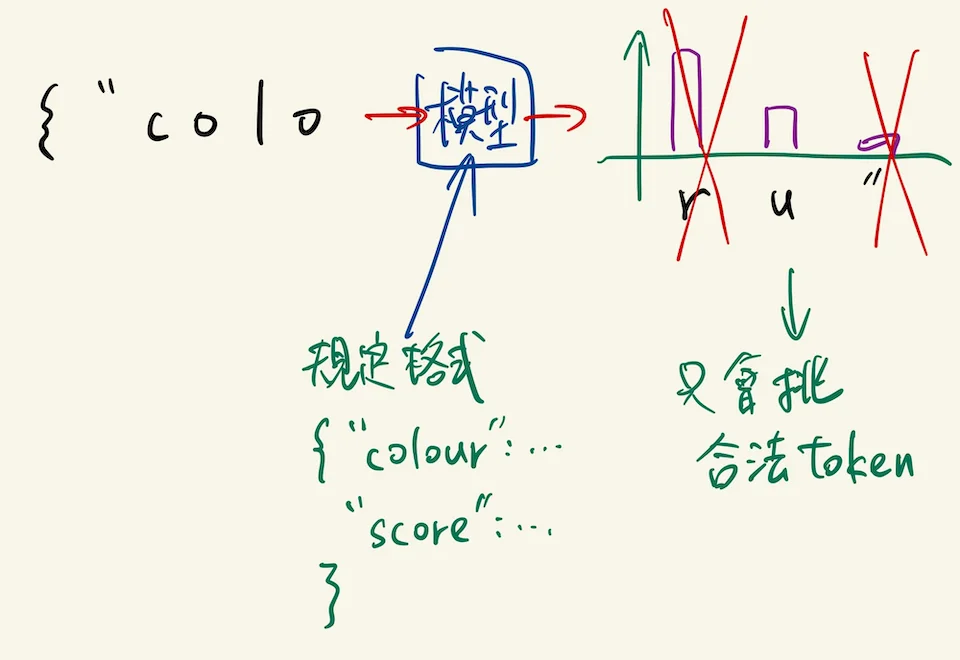 { "colo
模型
r u "
規定格式
{ "colour": ...
"score": ...
}
只會挑
合法token